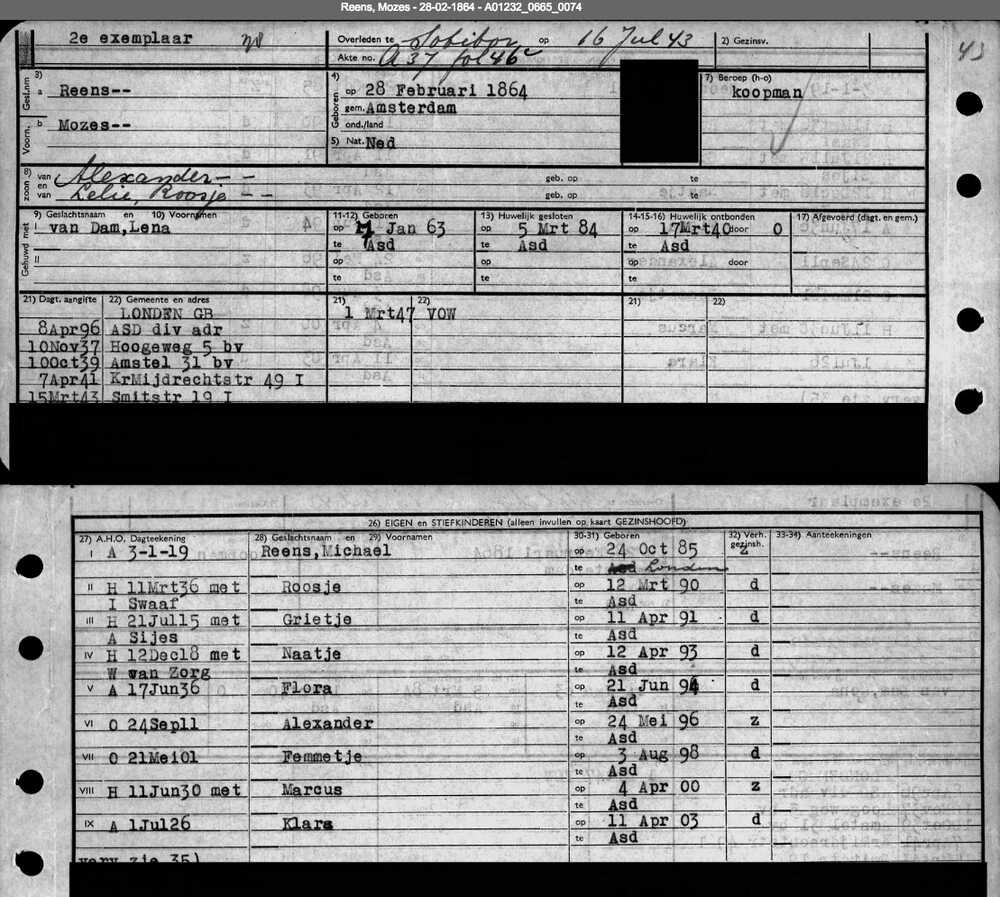 Reens, Mozes - 28-02-1864 - A01232_0665_0074
2e exemplaar
Overleden te Sobibor op 16 Jul 43
2) Gezinsv.
43
Akte no. A 37 fol 46c
Gesl.nm
3)
a Reens--
4)
Geboren
op 28 Februari 1864
gem. Amsterdam
7) Beroep (h-o)
koopman
Voorn.
b Mozes--
ond./land
5) Nat. Ned
8)
zoon
van Alexander-- geb. op te
en
van Lelie, Roosje -- geb. op te
Gehuwd met
9) Geslachtsnaam en 10) Voornamen
11-12) Geboren
13) Huwelijk gesloten
14-15-16) Huwelijk ontbonden
17) Afgevoerd (dagt. en gem.)
I van Dam,Lena
op Jan 63
op 5 Mrt 84
op 17Mrt40 door O
te Asd
te Asd
te Asd
II
op
op
op door
te
te
te
21) Dagt. aangifte 22) Gemeente en adres
21) 22)
21) 22)
LONDEN GB
1 Mrt47 VOW
8Apr96 ASD div adr
10Nov37 Hoogeweg 5 bv
10Oct39 Amstel 31 bv
7Apr41 KrMijdrechtstr 49 I
15Mrt43 Smitstr 19 I
26) EIGEN en STIEFKINDEREN (alleen invullen op kaart GEZINSHOOFD)
27) A.H.O. Dagteekening
28) Geslachtsnaam en 29) Voornamen
30-31) Geboren
32) Verh. gezinsh.
33-34) Aanteekeningen
I A 3-1-19 Reens,Michael op 24 Oct 85 z
te Asd London
II H 11Mrt36 met Roosje op 12 Mrt 90 d
I Swaaf te Asd
III H 21Jul15 met Grietje op 11 Apr 91 d
A Sijes te Asd
IV H 12Dec18 met Naatje op 12 Apr 93 d
W van Zorg te Asd
V A 17Jun36 Flora op 21 Jun 94 d
te Asd
VI O 24Sep11 Alexander op 24 Mei 96 z
te Asd
VII O 21Mei01 Femmetje op 3 Aug 98 d
te Asd
VIII H 11Jun30 met Marcus op 4 Apr 00 z
te Asd
IX A 1Jul26 Klara op 11 Apr 03 d
te Asd
verv zie 35)